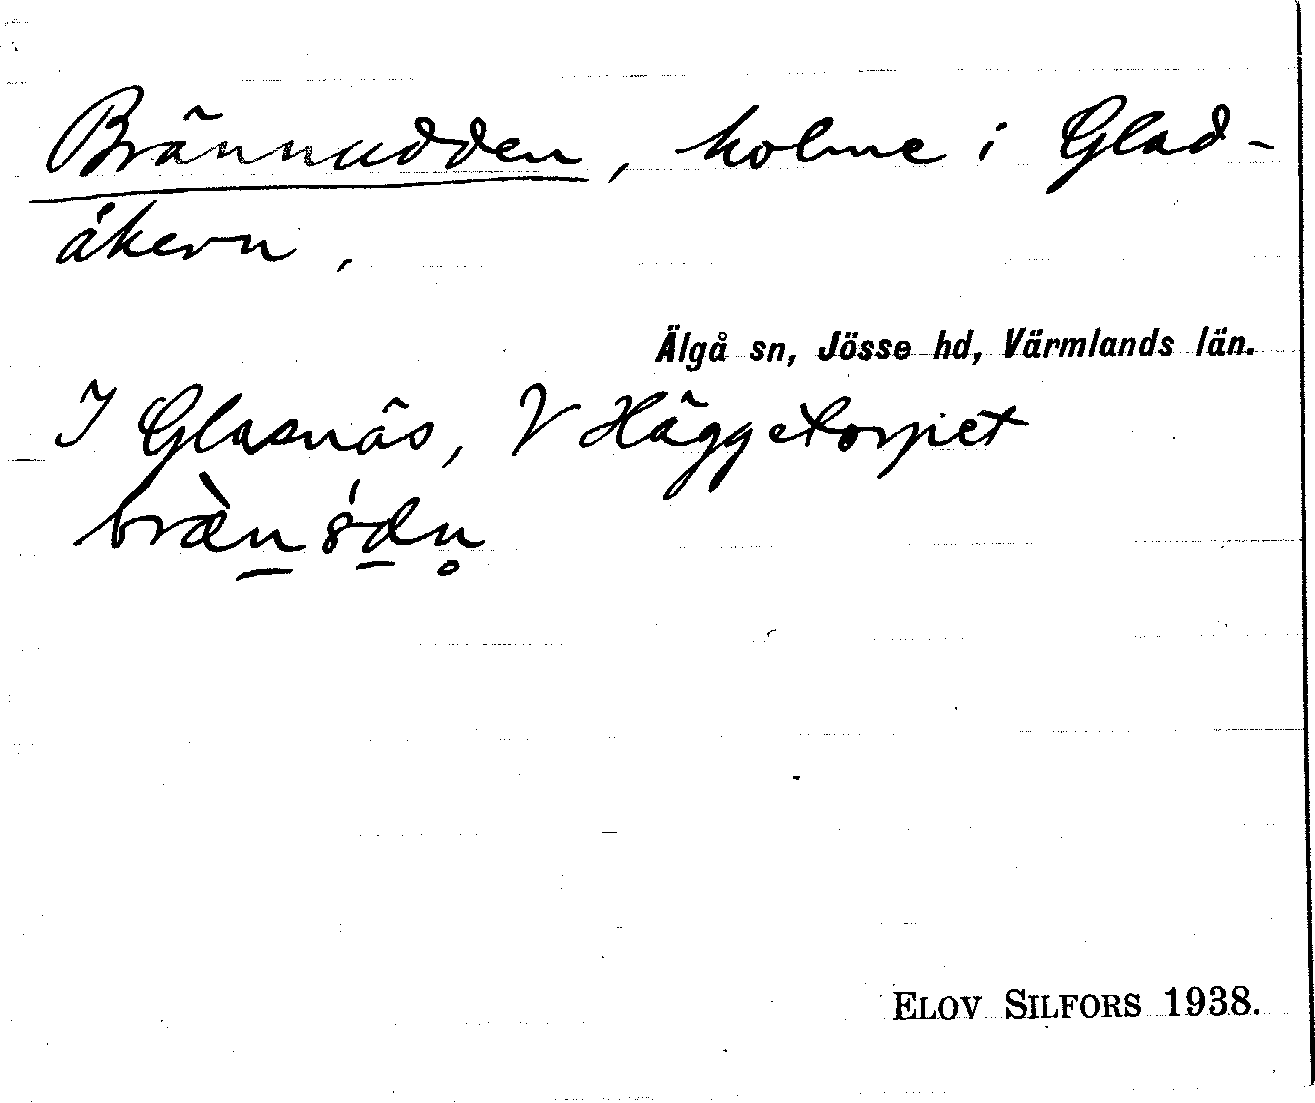 Brännudden, holme i Glad-
åkern,
Älgå sn, Jösse hd, Värmlands län.
I Glasnäs, V Häggetorpet
ELOV SILFORS 1938.